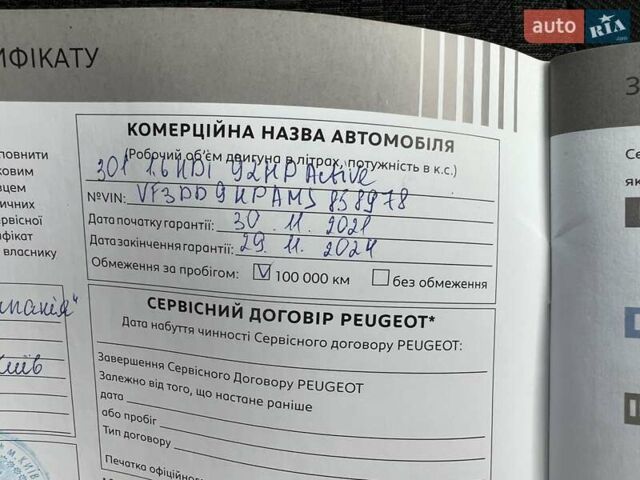 auto RIA .com
ИФІКАТУ
КОМЕРЦІЙНА НАЗВА АВТОМОБІЛЯ
(Робочий об'єм двигуна в літрах, потужність в к.с.)
301 1.6 HDI 92HP Active
№VIN: VF3DD9HPAMJ858978
Дата початку гарантії: 30.11.2021
Дата закінчення гарантії: 29.11.2024
Обмеження за пробігом: V 100 000 км без обмеження
СЕРВІСНИЙ ДОГОВІР PEUGEOT*
Дата набуття чинності Сервісного договору PEUGEOT:
Завершення Сервісного Договору PEUGEOT
Залежно від того, що настане раніше
дата
або пробіг
Тип договору
Печатка офіційного
повнити
ковим
вцем
ичних
рвісної
фікат
власнику
мпанія"
Київ
м. КИЇВ
З
Се
як